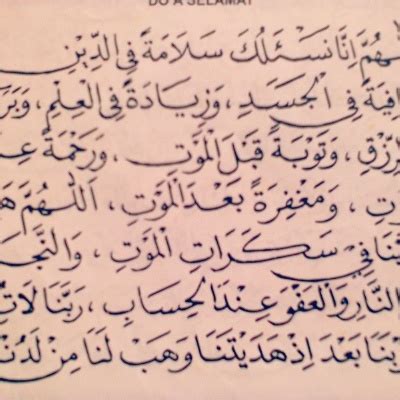 DO'A SELAMAT
لّٰهُمَّ اِنَّا نَسْئَلُكَ سَلَامَةً فِي الدِّيْنِ
افِيَةً فِي الْجَسَدِ ، وَزِيَادَةً فِي الْعِلْمِ ، وَبَرَ
لرِّزْقِ ، وَتَوْبَةً قَبْلَ الْمَوْتِ ، وَرَحْمَةً عِـ
تِ ، وَمَغْفِرَةً بَعْدَ الْمَوْتِ ، اَللّٰهُمَّ هَـ
يْنَا فِيْ سَكَرَاتِ الْمَوْتِ ، وَالنَّجَا
النَّارِ وَالْعَفْوَ عِنْدَ الْحِسَابِ ، رَبَّنَا لَا تُـ
وْبَنَا بَعْدَ اِذْ هَدَيْتَنَا وَهَبْ لَنَا مِنْ لَدُنْـ